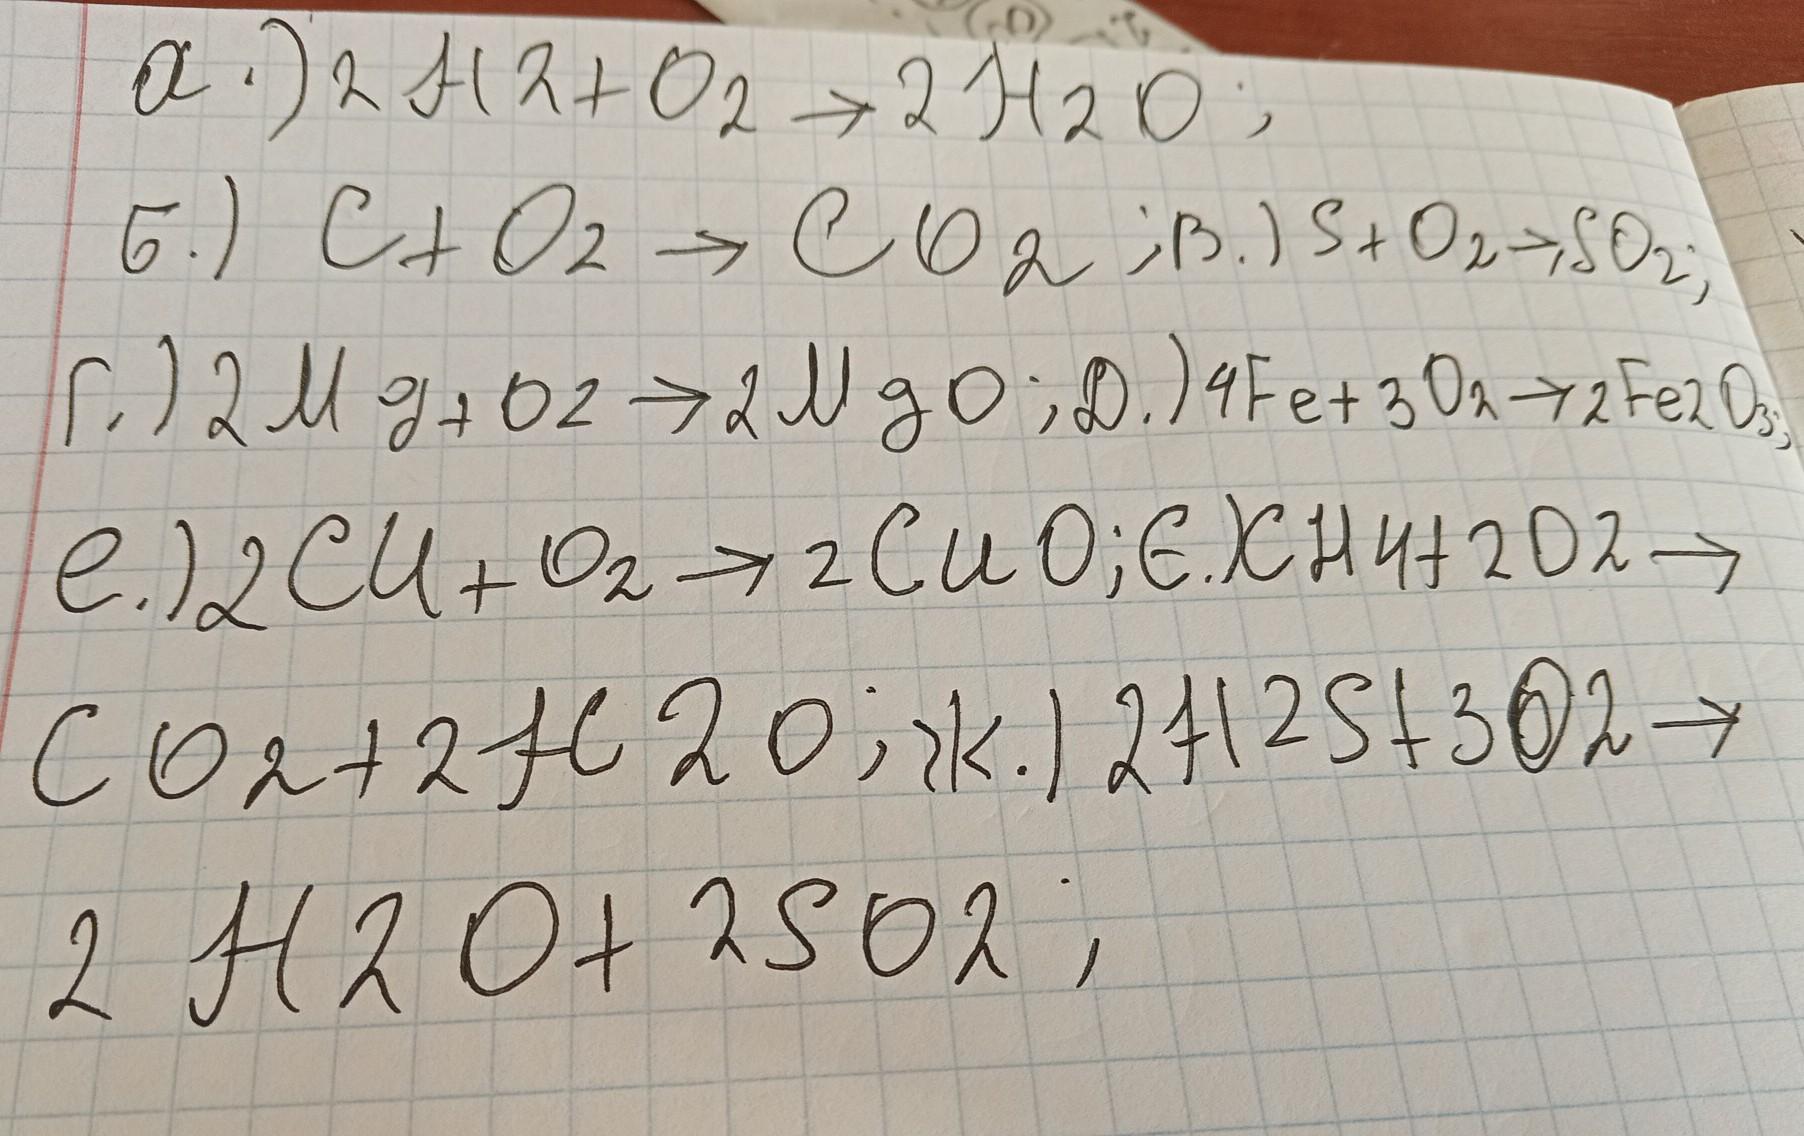 а.) 2H2+O2→2H2O;
б.) C+O2→CO2; в.) S+O2→SO2;
г.) 2Mg+O2→2MgO; Д.) 4Fe+3O2→2Fe2O3;
е.) 2Cu+O2→2CuO; Є.) CH4+2O2→
CO2+2H2O; ж.) 2H2S+3O2→
2H2O+2SO2;